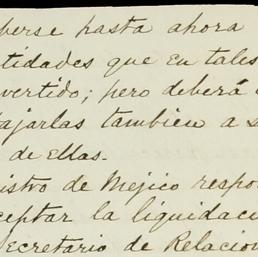 berse hasta ahora
tidades que en tales
vertido; pero deberá
tajarlas tambien a
de Ellas.
istro de Mejico respo
ceptar la liquidaci
Secretario de Relacion